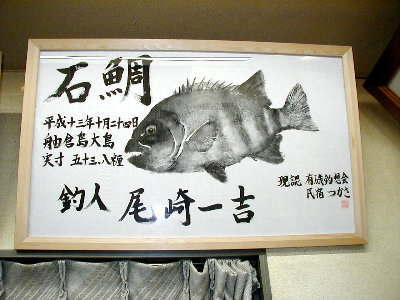 石鯛
平成十三年十月二十四日
舳倉島大島
実寸 五十三.八糎
釣人 尾崎一吉
現認 有磯釣想会
民宿 つかさ